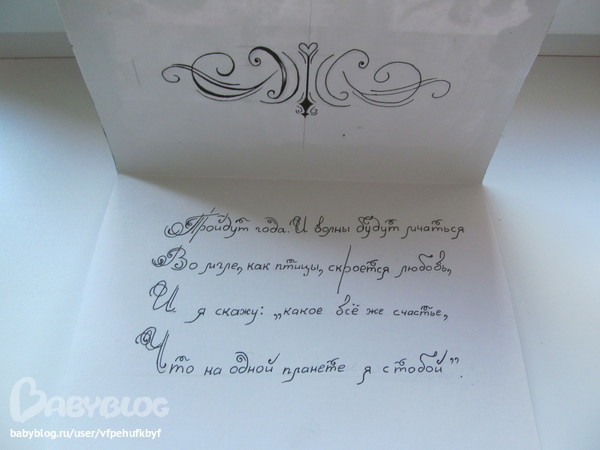 Пройдут года. И волны будут мчаться
Во мгле, как птицы, скроется любовь,
И я скажу: „какое всё же счастье,
Что на одной планете я с тобой".
BABYBLOG
babyblog.ru/user/vfpehufkbyf